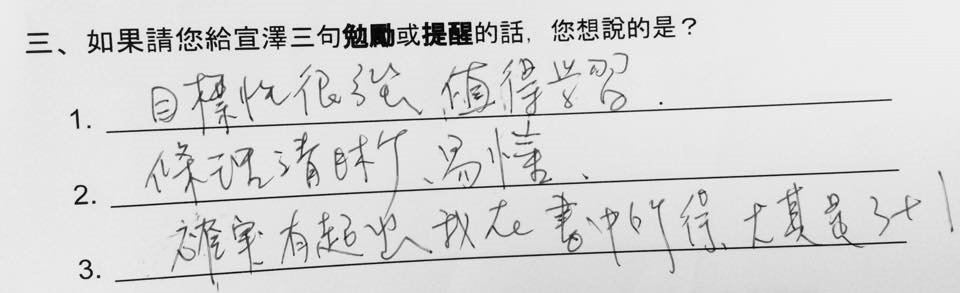 三、如果請您給宣澤三句勉勵或提醒的話，您想說的是？
1. 目標性很強 值得學習.
2. 條理清晰、易懂、
3. 確實有超出我在書中所得、尤其是3+1